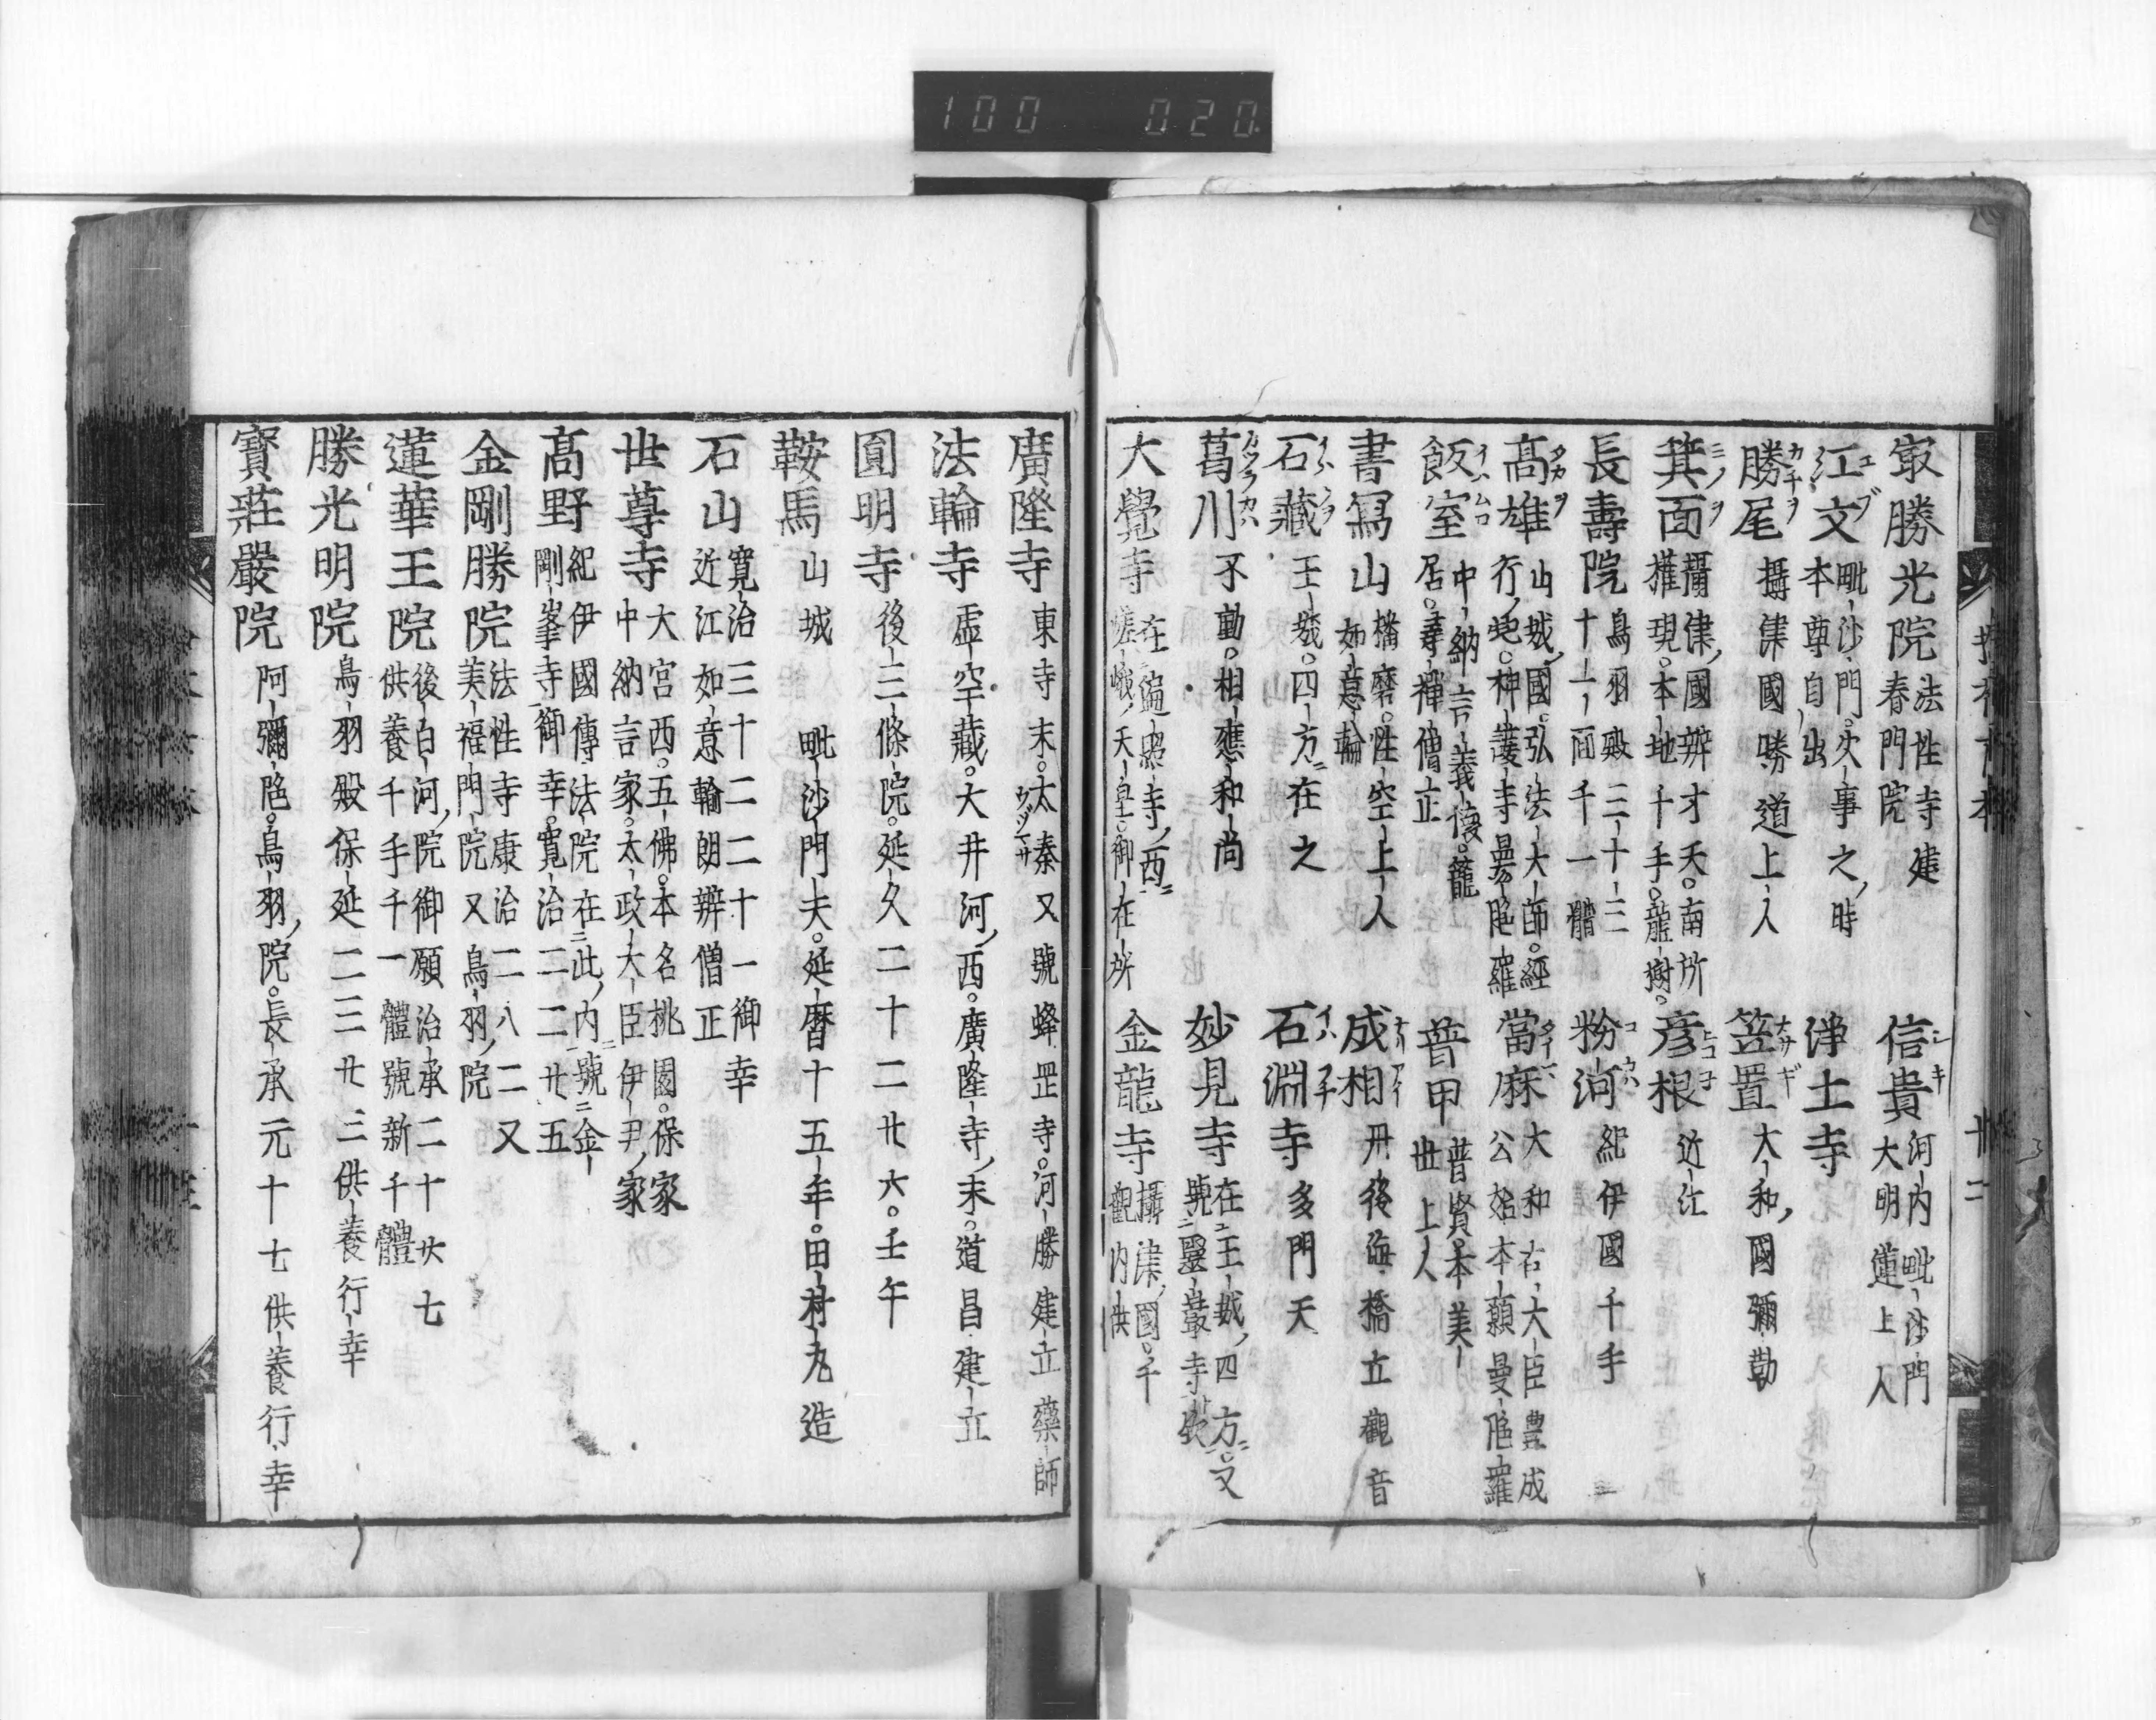 100 020
㝡勝光院 法性寺建春門院
信貴 河内毗沙門大明蓮上人
江文 毗沙門火事之時本尊自出
浄土寺
勝尾 攝津國勝道上人
笠置 大和國彌勒
箕面 攝津國辨才天南所權現本地千手龍樹
彦根 近江
長壽院 鳥羽殿三十三十一面千一體
粉河 紀伊國千手
髙雄 山城國弘法大師經行處神護寺曼陁羅
當麻 大和右大臣豊成公建本願曼陁羅
飯室 中納言義懐籠居尋禪僧正
普甲 普賢本美世上人
書冩山 播磨性空上人如意輪
成相 丹後海橋立觀音
石藏 王城四方在之
石淵寺 多門天
葛川 不動相應和尚
妙見寺 在王城四方又號靈嚴寺欤
大覺寺 在遍照寺西嵯峨天皇御在所
金龍寺 攝津國千觀内供
廣隆寺 東寺末太秦又號蜂罡寺河勝建立藥師
法輪寺 虚空藏大井河西廣隆寺末道昌建立
圓明寺 後三條院延久二十二廿六壬午
鞍馬 山城 毗沙門夫延暦十五年田村丸造
石山 寛治三十二二十一御幸近江如意輪朗辨僧正
世尊寺 大宮西五佛本名桃園保家中納言家太政大臣伊尹家
髙野 紀伊國傳法院在此内號金剛峯寺御幸寛治二二廿五
金剛勝院 法性寺康治二八二又美福門院又鳥羽院
蓮華王院 後白河院御願治承二十廿七供養千手千一體號新千體
勝光明院 鳥羽殿保延二三廿三供養行幸
寳莊嚴院 阿彌陁鳥羽院長承元十七供養行幸